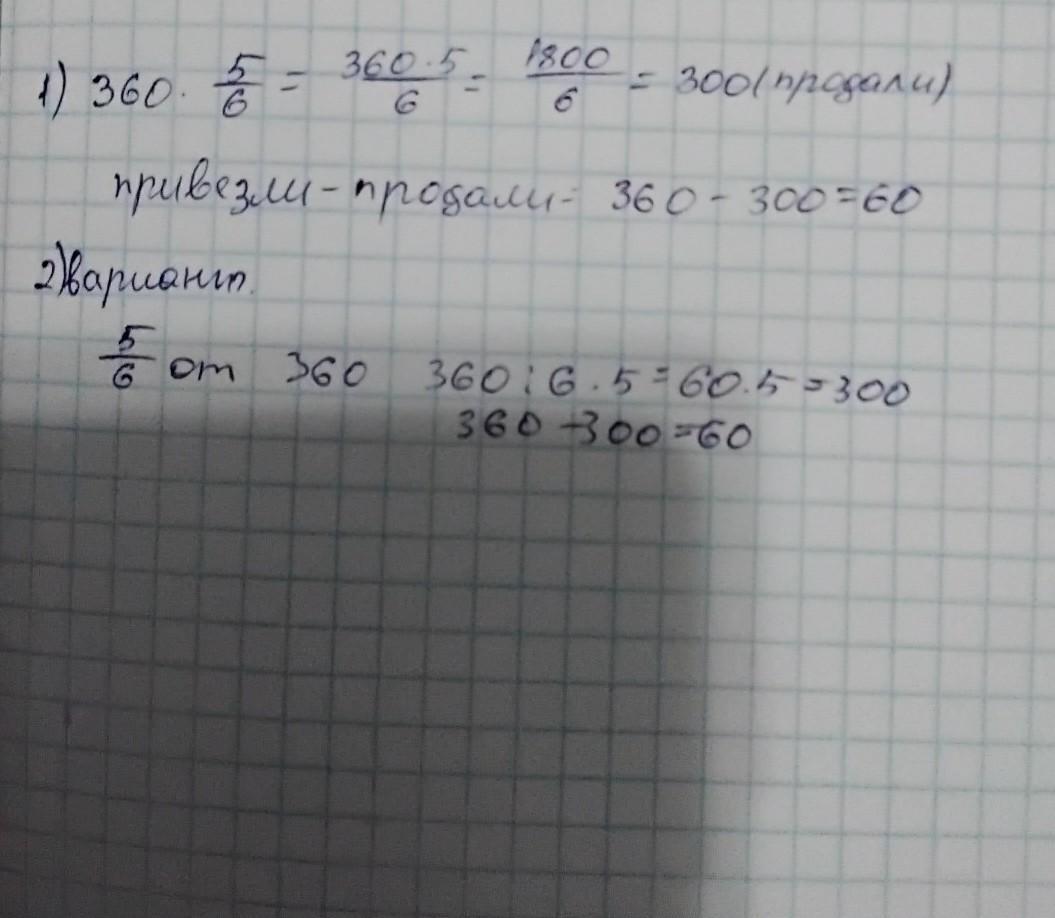 1) 360 · 5/6 = 360 · 5/6 = 1800/6 = 300 (продали)
привезли - продали = 360 - 300 = 60
2) вариант.
5/6 от 360 360 : 6 · 5 = 60 · 5 = 300
360 - 300 = 60